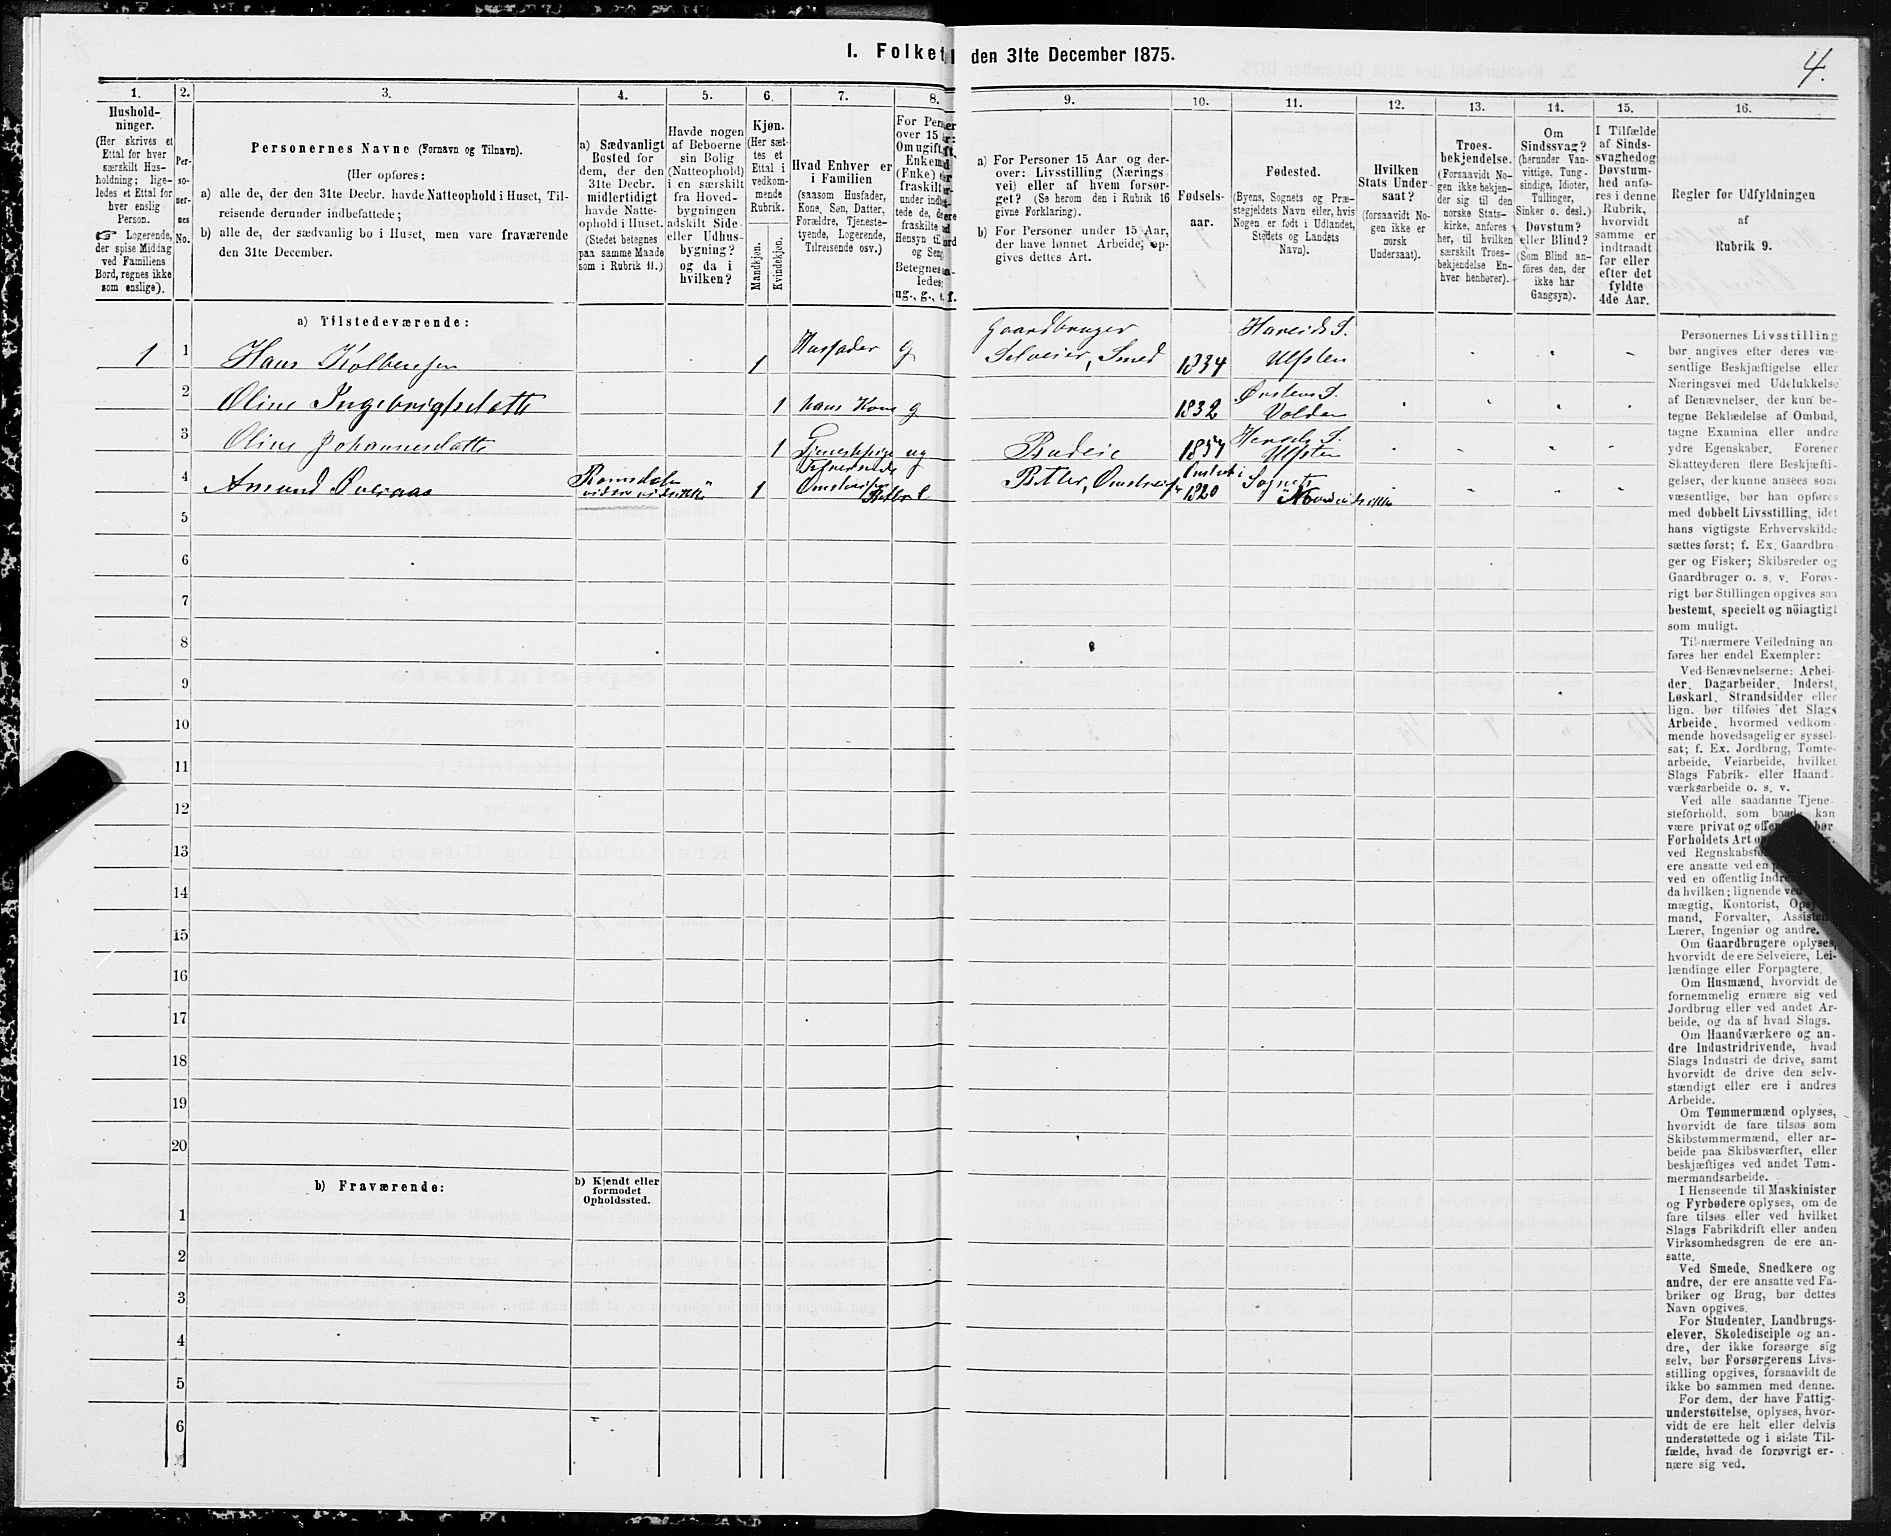 I. Folket
den 31te December 1875.
4.
1.
2.
3.
4.
5.
6.
7.
8.
9.
10.
11.
12.
13.
14.
15.
16.
Hushold-
ninger.
(Her skrives et
Ettal for hver
særskilt Hus-
holdning; lige-
ledes et Ettal for
hver enslig
Person.
☞ Logerende,
der spise Middag
ved Familiens
Bord, regnes ikke
som enslige).
Per-
so-
ner-
nes
No.
Personernes Navne (Fornavn og Tilnavn).
(Her opføres:
a) alle de, der den 31te Decbr. havde Natteophold i Huset, Til-
reisende derunder indbefattede;
b) alle de, der sædvanlig bo i Huset, men vare fraværende
den 31te December.
a) Sædvanligt
Bosted for
dem, der den
31te Decbr.
midlertidigt
havde Natte-
ophold i Huset.
(Stedet betegnes
paa samme Maade
som i Rubrik 11.)
Havde nogen
af Beboerne
sin Bolig
(Natteophold)
i en særskilt
fra Hoved-
bygningen
adskilt Side-
eller Udhus-
bygning?
og da i
hvilken?
Kjøn.
(Her sæt-
tes et
Ettal i
vedkom-
mende
Rubrik.
Mandkjøn.
Kvindekjøn.
Hvad Enhver er
i Familien
(saasom Husfader,
Kone, Søn, Datter,
Forældre, Tjeneste-
tyende, Logerende,
Tilreisende osv.)
For Per
over 15
Om ugift,
Enkem
(Enke)
fraskilt
Betegnes
ledes:
ug., g., e, f.
a) For Personer 15 Aar og der-
over: Livsstilling (Nærings
vei) eller af hvem forsør-
get? (Se herom den i Rubrik 16
givne Forklaring).
b) For Personer under 15 Aar,
der have lønnet Arbeide, op-
gives dettes Art.
Fødsels-
aar.
Fødested.
(Byens, Sognets og Præ-
stegjeldets Navn eller, hvis
Nogen er født i Udlandet,
Stedets og Landets
Navn).
Hvilken
Stats Under-
saat?
(forsaavidt No-
gen ikke er
norsk
Undersaat).
Troes-
bekjendelse.
(Forsaavidt No-
gen ikke bekjen-
der sig til den
norske Stats-
kirke, anføres
her, til hvilken
særskilt Troes-
bekjendelse En-
hver henhører).
Om
Sindssvag?
(herunder Van-
vittige, Tung-
sindige, Idioter,
Tullinger,
Sinker o. desl.)
Døvstum?
eller Blind?
(Som Blind an-
føres den, der
ikke har
Gangsyn).
I Tilfælde
af Sinds-
svaghed og
Døvstum-
hed anfø-
res i denne
Rubrik,
hvorvidt
samme er
indtraadt
før eller
efter det
fyldte
4de Aar.
Regler for Udfyldningen
af
Rubrik 9.
a) Tilstedeværende:
1 1 Hans Kolbensen 1 Husfader g Gaardbruger Selveier, Smed 1834 Hareids S. Ulfsten
2 Oline Ingebrigtsdatte 1 hans Kone g 1832 Ørstens S. Volden
3 Oline Johannesdatte 1 Tjenestepige ug Budeie 1857 S. Ulfsten
4 Amund Øveraas Romsdalen 1 1820
5
6
7
8
9
10
11
12
13
14
15
16
17
18
19
20
b) Fraværende:
b) Kjendt eller
formodet
Opholdssted.
1
2
3
4
5
6
Personernes Livsstilling
bør angives efter deres væ-
sentlige Beskjæftigelse eller
Næringsvei med Udelukkelse
af Benævnelser, der kun be-
tegne Beklædelse af Ombud,
tagne Examina eller andre
ydre Egenskaber. Forener
Skatteyderen flere Beskjæfti-
gelser, der kunne ansees som
væsentlige, bør han opføres
med dobbelt Livsstilling, idet
hans vigtigste Erhvervskilde
sættes først; f. Ex. Gaardbru-
ger og Fisker; Skibsreder og
Gaardbruger o. s. v. Forøv-
rigt bør Stillingen opgives saa
bestemt, specielt og nöiagtigt
som muligt.
Til nærmere Veiledning an
føres her endel Exempler:
Ved Benævnelserne: Arbei-
der, Dagarbeider, Inderst,
Løskarl, Strandsidder eller
lign. bør tilføies det Slags
Arbeide, hvormed vedkom-
mende hovedsagelig er syssel-
sat; f. Ex. Jordbrug, Tomte-
arbeide, Veiarbeide, hvilket
Slags Fabrik- eller Haand-
værksarbeide o. s. v.
Ved alle saadanne Tjene-
steforhold, som baade kan
være privat og offen bør
Forholdets Art
ved Regnskabsfø
ere ansatte ved en
ved en offentlig Indre
da hvilken; lignende ved
mægtig, Kontorist, Opsy
mand, Forvalter, Assistent,
Lærer, Ingeniør og andre.
Om Gaardbrugere oplyses,
hvorvidt de ere Selveiere, Lei-
lændinge eller Forpagtere.
Om Husmænd, hvorvidt de
fornemmelig ernære sig ved
Jordbrug eller ved andet Ar-
beide, og da af hvad Slags.
Om Haandværkere og an-
dre Industridrivende, hvad
Slags Industri de drive, samt
hvorvidt de drive den selv-
stændigt eller ere i andres
Arbeide.
Om Tømmermænd oplyses,
hvorvidt de fare tilsøs som
Skibstømmermænd, eller ar-
beide paa Skibsværfter, eller
beskjæftiges ved andet Tøm-
mermandsarbeide.
I Henseende til Maskinister
og Fyrbødere oplyses, om de
fare tilsøs eller ved hvilket
Slags Fabrikdrift eller anden
Virksomhedsgren de ere an-
satte.
Ved Smede, Snedkere og
andre, der ere ansatte ved Fa-
briker og Brug, bør dettes
Navn opgives.
For Studenter, Landbrugs-
elever, Skoledisciple og an-
dre, der ikke forsørge sig
selv, bør Forsørgerens Livs-
stilling opgives, forsaavidt de
ikke bo sammen med denne.
For dem, der have Fattig-
understøttelse, oplyses, hvor-
vidt de ere helt eller delvis
understøttede og i sidste Til-
fælde, hvad de forøvrigt er-
nære sig ved.